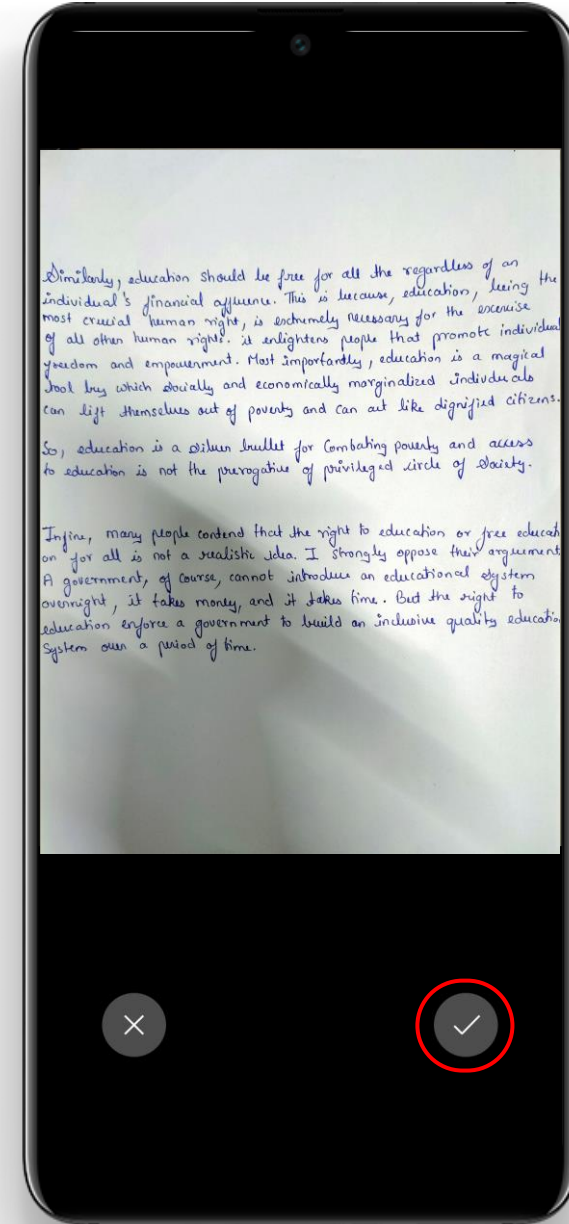 Similarly, education should be free for all the regardless of an
individual's financial affluence. This is because, education, being the
most crucial human right, is extremely necessary for the exercise
of all other human rights. it enlightens people that promote individual
freedom and empowerment. Most importantly, education is a magical
tool by which socially and economically marginalized individuals
can lift themselves out of poverty and can act like dignified citizens.
So, education is a silver bullet for Combating poverty and access
to education is not the prerogative of privileged circle of Society.
Infine, many people contend that the right to education or free educati
on for all is not a realistic idea. I strongly oppose their arguement
A government, of course, cannot introduce an educational system
overnight, it takes money, and it takes time. But the right to
education enforce a government to build an inclusive quality educatio
System over a period of time.